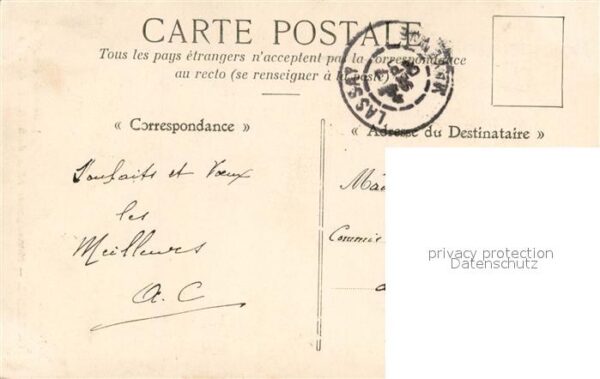 CARTE POSTALE
Tous les pays étrangers n'acceptent pas la correspondance
au recto (se renseigner à la poste)
LASSAY
« Correspondance »
Souhaits et Vœux
les
Meilleurs
A. C
« Adresse du Destinataire »
privacy protection
Datenschutz